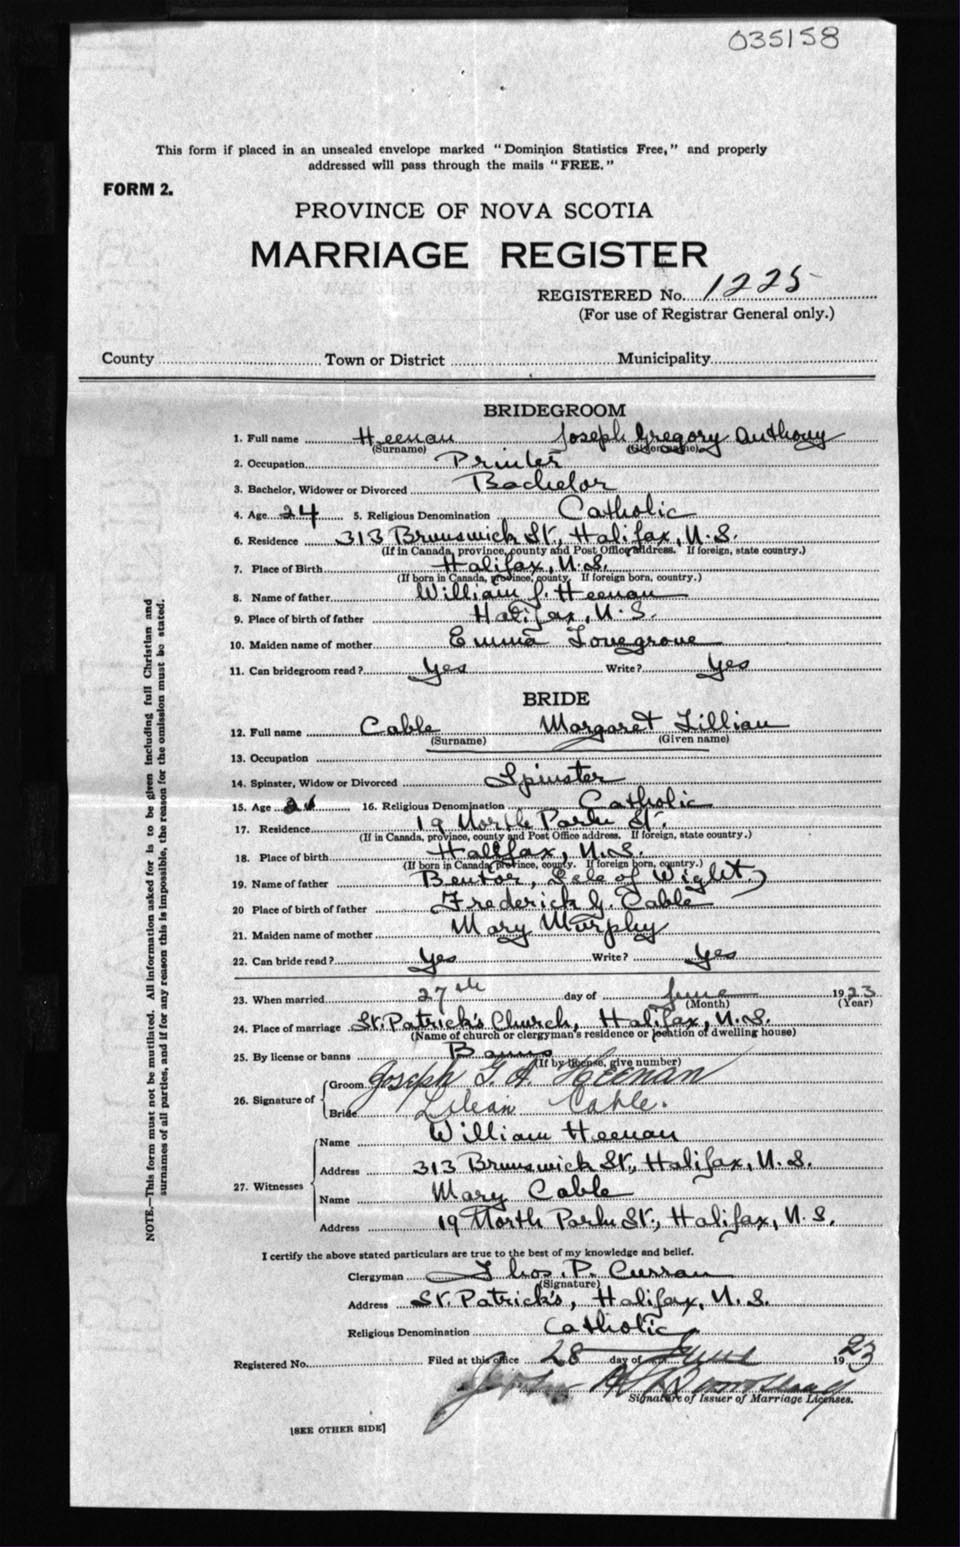 035158
This form if placed in an unsealed envelope marked "Dominion Statistics Free," and properly
addressed will pass through the mails "FREE."
FORM 2.
PROVINCE OF NOVA SCOTIA
MARRIAGE REGISTER
REGISTERED No. 1225
(For use of Registrar General only.)
County Town or District Municipality
BRIDEGROOM
1. Full name Heenan Joseph Gregory Anthony
(Surname) (Given name)
2. Occupation Printer
3. Bachelor, Widower or Divorced Bachelor
4. Age 24 5. Religious Denomination Catholic
6. Residence 313 Brunswick St., Halifax, N.S.
(If in Canada, province, county and Post Office address. If foreign, state country.)
7. Place of Birth Halifax, N.S.
(If born in Canada, province, county. If foreign born, country.)
8. Name of father William J. Heenan
9. Place of birth of father Halifax, N.S.
10. Maiden name of mother Emma Lovegrove
11. Can bridegroom read? Yes Write? Yes
BRIDE
12. Full name Cable Margaret Lillian
(Surname) (Given name)
13. Occupation
14. Spinster, Widow or Divorced Spinster
15. Age 16. Religious Denomination Catholic
17. Residence 19 North Park St.
(If in Canada, province, county and Post Office address. If foreign, state country.)
18. Place of birth Halifax, N.S.
(If born in Canada, province, county. If foreign born, country.)
19. Name of father Isle of Wight)
20 Place of birth of father Frederick G. Cable
21. Maiden name of mother Mary Murphy
22. Can bride read? Yes Write? Yes
23. When married 27th day of June 1923
(Month) (Year)
24. Place of marriage St. Patrick's Church, Halifax, N.S.
(Name of church or clergyman's residence or location of dwelling house)
25. By license or banns Banns
(If by license, give number)
26. Signature of Groom Joseph G. A. Heenan
Bride Lilian Cable.
27. Witnesses Name William Heenan
Address 313 Brunswick St., Halifax, N.S.
Name Mary Cable
Address 19 North Park St., Halifax, N.S.
I certify the above stated particulars are true to the best of my knowledge and belief.
Clergyman Thos. P. Curran
(Signature)
Address St. Patrick's, Halifax, N.S.
Religious Denomination Catholic
Registered No. Filed at this office 28 day of June 1923
Signature of Issuer of Marriage Licenses.
[SEE OTHER SIDE]
NOTE.—This form must not be mutilated. All information asked for is to be given including full Christian and
surnames of all parties, and if for any reason this is impossible, the reason for the omission must be stated.